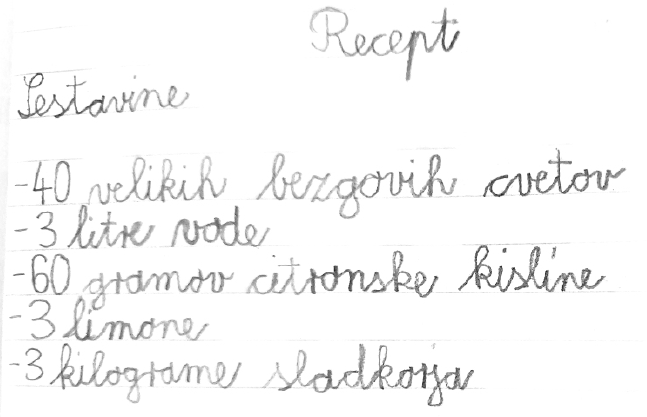 Recept
Sestavine
-40 velikih bezgovih cvetov
-3 litre vode
-60 gramov citronske kisline
-3 limone
-3 kilograme sladkorja